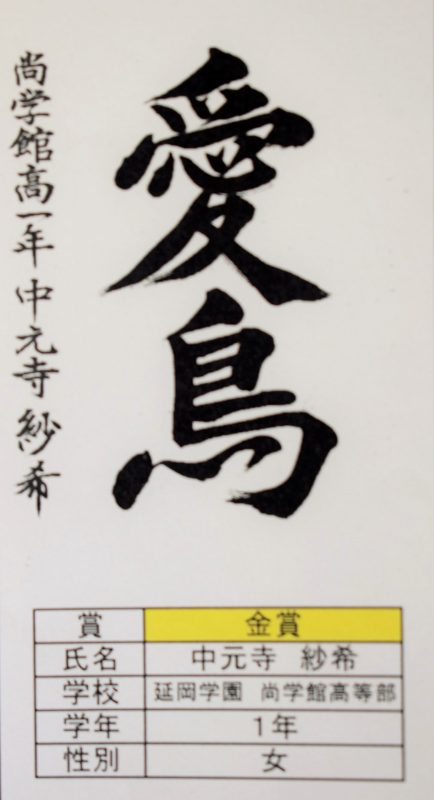 愛鳥
尚学館高一年 中元寺 紗希
賞 金賞
氏名 中元寺 紗希
学校 延岡学園 尚学館高等部
学年 1年
性別 女